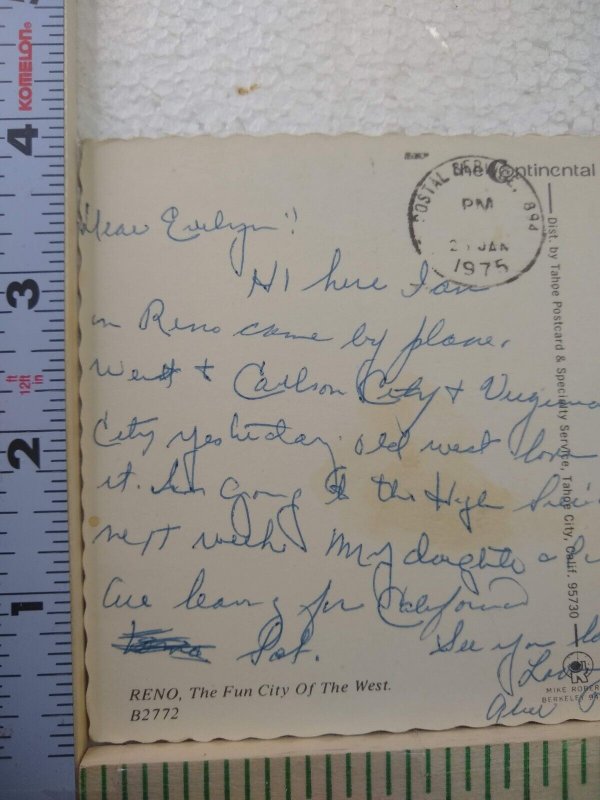 KOMELON
ft
12ft in
4
3
2
1
the Continental
POSTAL SERVICE 894
PM
JAN
1975
Dear Evelyn!
Hi here I am
in Reno came by plane.
Went to Carlson City & Virginia
City yesterday. old west love
it. Am going to the High
next week My daughter & I
are leaving for California
Sat.
See you
Love
RENO, The Fun City Of The West.
B2772
Dist. by Tahoe Postcard & Specialty Service, Tahoe City, Calif. 95730
MIKE ROBER
BERKELEY